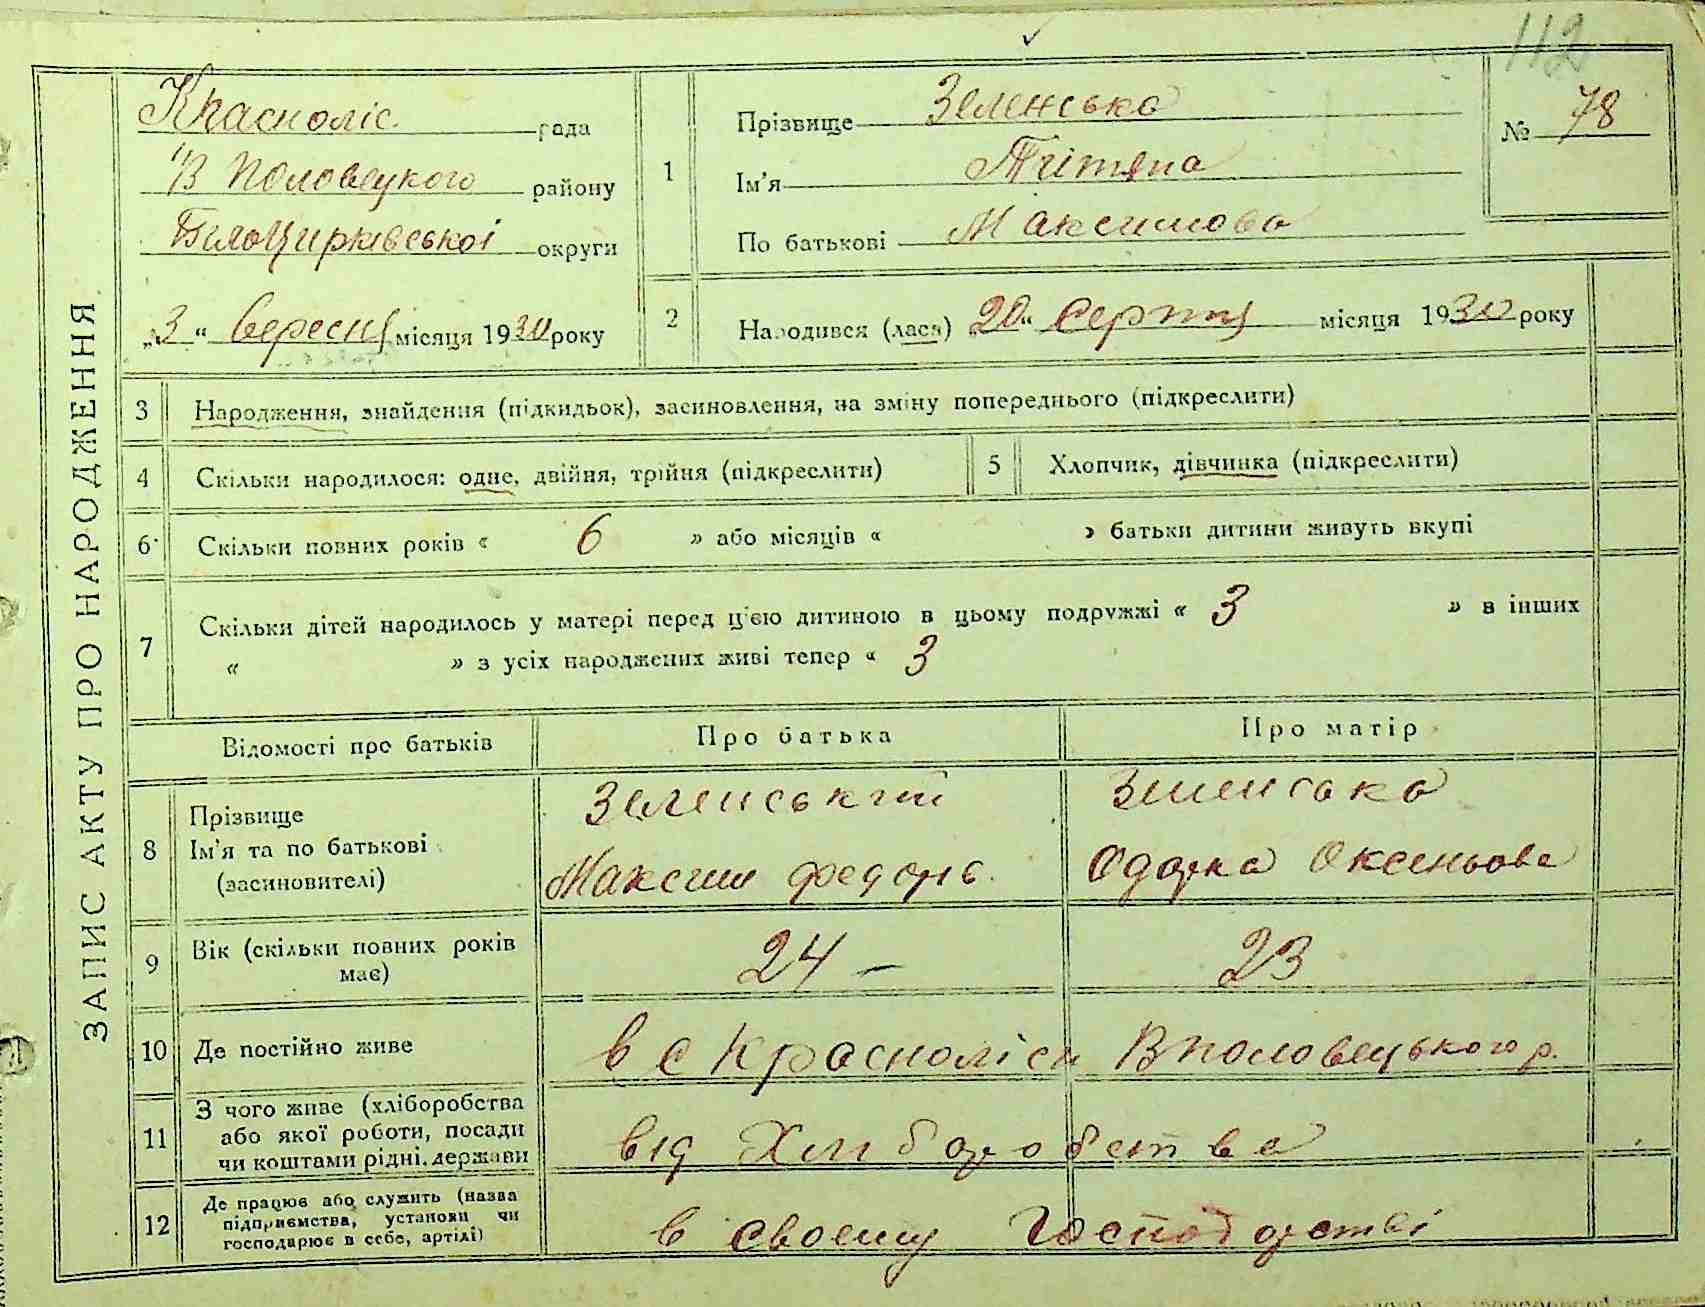 112
ЗАПИС АКТУ ПРО НАРОДЖЕННЯ
Красноліс. рада
В Половецкого району
Білоцирківської округи
„3“ вересня місяця 1930 року
1
Прізвище Зеленська
Ім'я Тітяна
По батькові Максимова
№ 78
2
Народився (лася) „20“ серпня місяця 1930 року
3 Народження, знайдення (підкидьок), засиновлення, на зміну попереднього (підкреслити)
4 Скільки народилося: одне, двійня, трійня (підкреслити)
5 Хлопчик, дівчинка (підкреслити)
6 Скільки повних років « 6 » або місяців « » батьки дитини живуть вкупі
7 Скільки дітей народилось у матері перед ц'єю дитиною в цьому подружжі « 3 » в інших
« » з усіх народжених живі тепер « 3
Відомості про батьків Про батька Про матір
8 Прізвище
Ім'я та по батькові
(засиновителі)
Зеленський
Максим Федорв.
Зиленська
Одарка Оксеньова
9 Вік (скільки повних років має) 24 — 23
10 Де постійно живе в с Краснолісн Вполовецького р.
11 З чого живе (хліборобства
або якої роботи, посади
чи коштами рідні, держави
від Хлиборобства
12 Де працює або служить (назва
підприємства, установи чи
господарює в себе, артілі)
в своему Господарстві